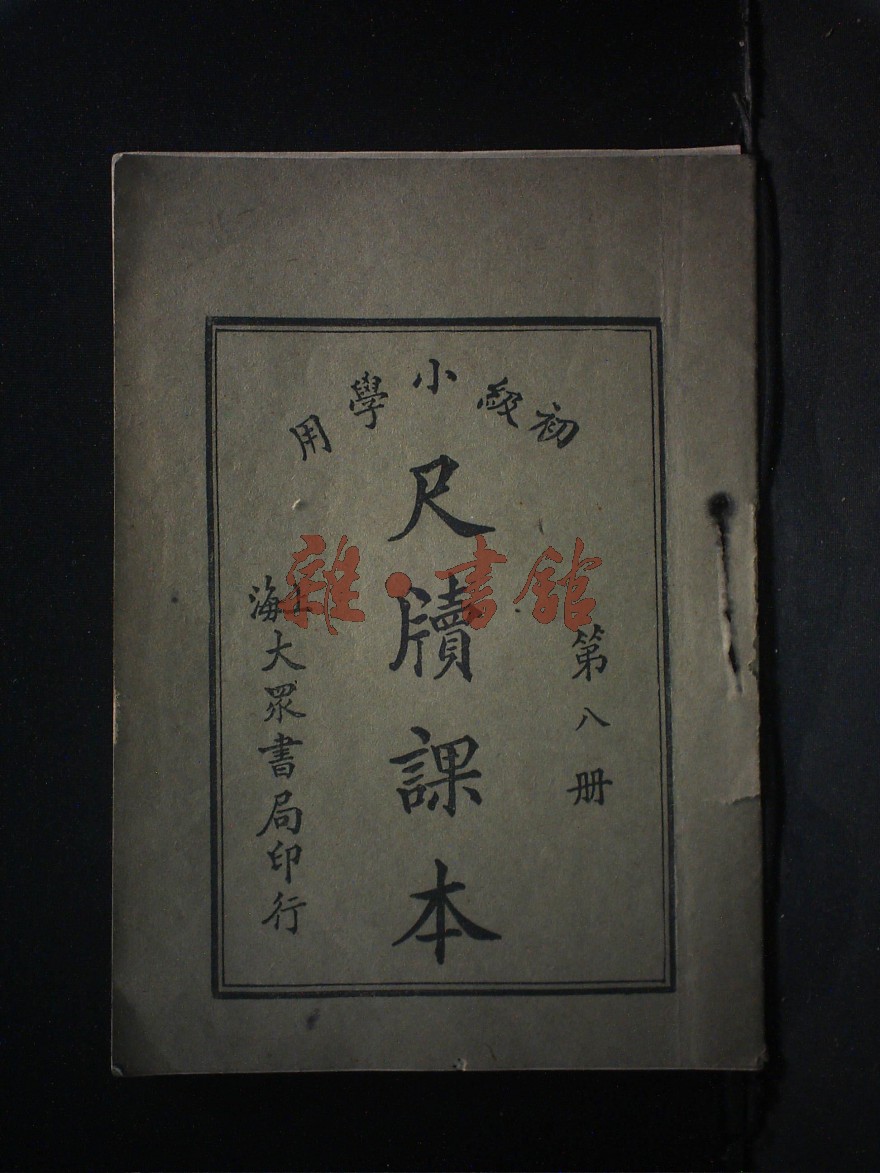 初級小學用
尺牘課本
第八册
上海大眾書局印行
雜·書館